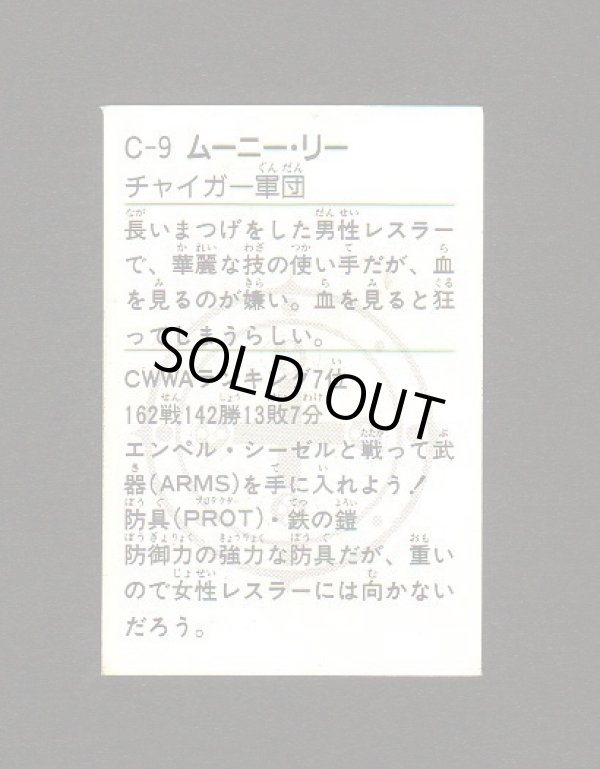 C-9 ムーニー・リー
チャイガー軍団
長いまつげをした男性レスラー
で、華麗な技の使い手だが、血
を見るのが嫌い。血を見ると狂
ってしまうらしい。
CWWAランキング7位
162戦142勝13敗7分
エンペル・シーゼルと戦って武
器(ARMS)を手に入れよう!
防具(PROT)・鉄の鎧
防御力の強力な防具だが、重い
ので女性レスラーには向かない
だろう。
SOLD OUT